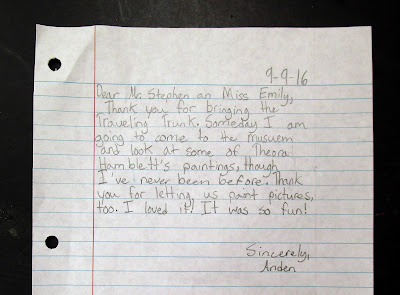 9-9-16
Dear Mr. Stephen an Miss Emily,
Thank you for bringing the
Traveling Trunk. Someday I am
going to come to the musuem
and look at some of Theora
Hamblett's paintings, though
I've never been before. Thank
you for letting us paint pictures,
too. I loved it! It was so fun!
Sincerely,
Anden